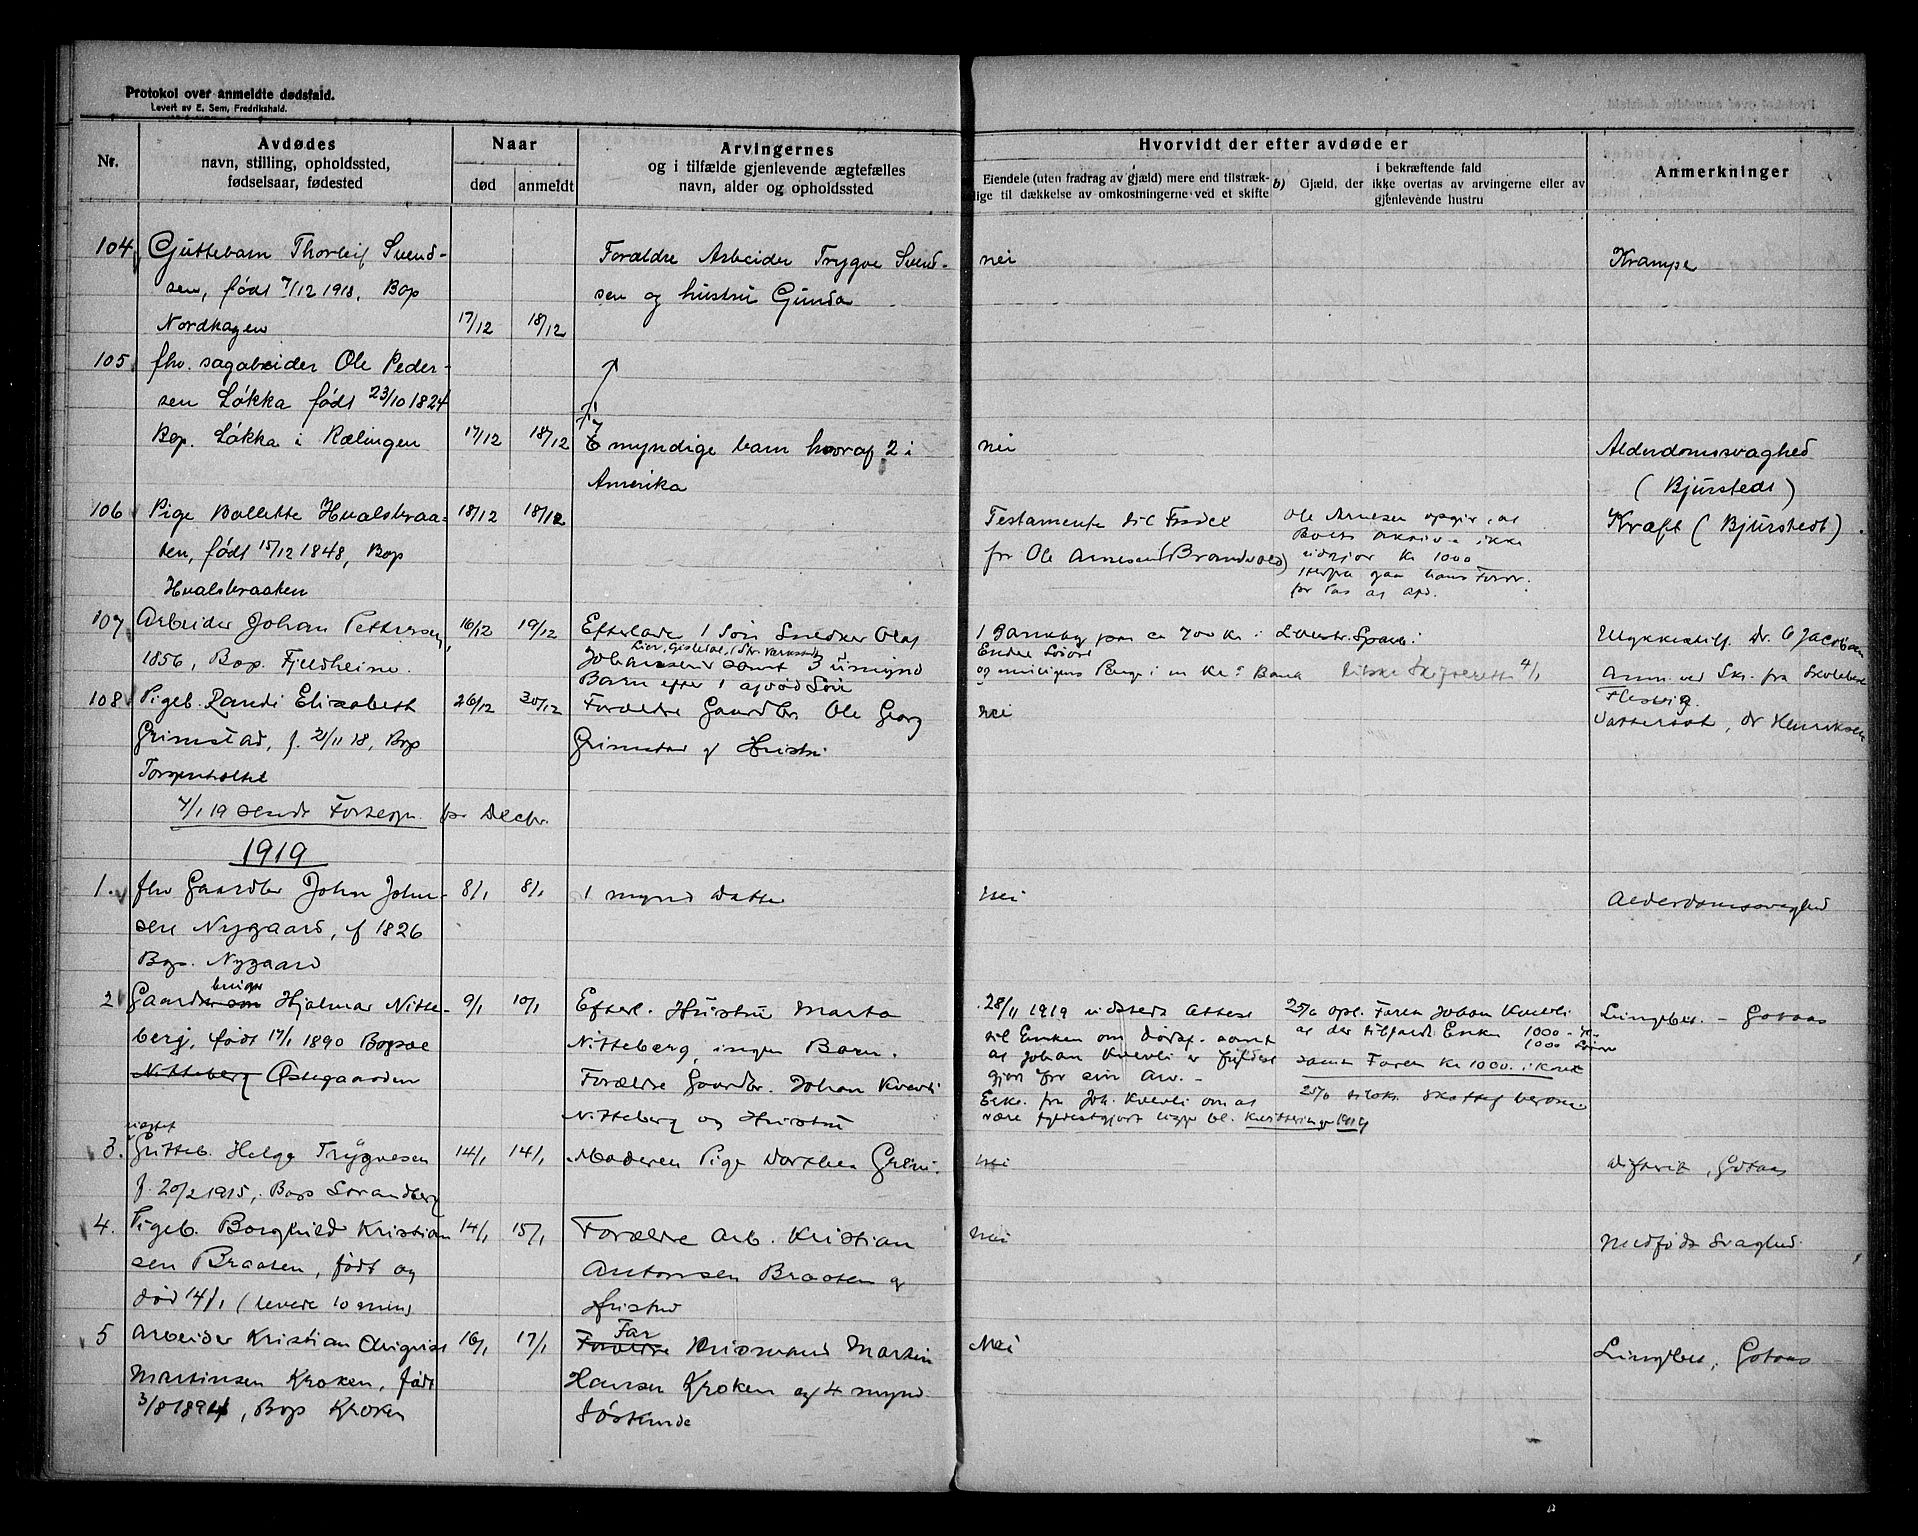 Protokol over anmeldte dødsfald.
Levert av E. Sem, Fredrikshald.
Nr.
Avdødes
navn, stilling, opholdssted,
fødselsaar, fødested
Naar
død
anmeldt
Arvingernes
og i tilfælde gjenlevende ægtefælles
navn, alder og opholdssted
Hvorvidt der efter avdøde er
Eiendele (uten fradrag av gjæld) mere end tilstræk-
lige til dækkelse av omkostningerne ved et skifte
b) Gjæld, der
i bekræftende fald
ikke overtas av arvingerne eller av
gjenlevende hustru
Anmerkninger
104 Guttebarn Thorleif Svend-
sen, født 7/12 1918, Bop
Nordhagen 17/12 18/12
Forældre Arbeider Trygve Svend-
sen og hustru Gunda
nei
Krampe
105 fhv. sagarbeider Ole Peder-
sen Løkka født 23/10 1824
Bop. Løkka i Rælingen 17/12 18/12
6 myndige barn hvoraf 2 i
Amerika
nei
Alderdomssvaghed
(Bjurstedt)
106 Pige Bollette Hvalsbraa-
ten, født 15/12 1848, Bop
Hvalsbraaten
18/12 18/12
Testamente til Fordel
for Ole Arnesen (Brandvold)
Ole Arnesen opgir, at
ikke
utgjør Kr 1000
Kræft (Bjurstedt)
107 Arbeider Johan Pettersen
1856, Bop. Fjeldheim.
16/12 19/12
Efterlader 1 Søn Snedker Olaf
Johansen samt 3 umynd
Barn efter 1 avdød Søn
1 Bankbog paa ca 700 Kr i
4/1
Ulykkestilf. Dr. O Jacobsen
Anm. ved Skr. fra
108 Pigeb. Randi Elisabeth
Grimstad, f. 21/11 18, Bop
Torgenholtet
26/12 30/12
Forældre Gaardbr Ole Georg
Grimstad og Hustru
Nei
Vattersot, Dr Henriksen
4/1 19 sendt Fortegn. for Decbr.
1919
1. fhv Gaardbr John John-
sen Nygaard, f 1826
Bop. Nygaard
8/1 8/1
1 mynd Datter
Nei
Alderdomssvaghed
2 Gaardbruger Hjalmar Nitte-
berg, født 17/1 1890 Bopæl
Nitteberg Østegaarden
9/1 10/1
Efterl. Hustru Marta
Nitteberg, ingen Barn.
Forældre Gaardbr. Johan Kværli
Nitteberg og Hustru
28/11 1919 utstedt Attest
til Enken om Dødsf. samt
at Johan Kværli er fyldest
gjort for sin Arv. -
Erkl. fra Joh. Kværli om at
være fyldestgjort ligger bl. Kvitteringer 1919
25/6 opl. Faren Johan Kværli
at der tilfaldt Enken 1000 - Kr
samt Faren Kr 1000. i
25/6
Lungebet. - Gotaas
3. Gutteb. Helge Trygvesen
f. 20/2 1915, Bop Strandberg
14/1 14/1
Moderen Pige Dorthea
Nei
Difterit, Gotaas
4. Pigeb. Borghild Kristian
sen Braaten, født og
død 14/1 (levede 10 min)
14/1 15/1
Forældre Arb. Kristian
Antonsen Braaten og
Hustru
Nei
Medfødt Svaghed
5 Arbeider Kristian August
Martinsen Kroken, født
3/8 1894, Bop Kroken
16/1 17/1
Forældre Far Husmand Martin
Hansen Kroken og 4 mynd
Søskende
Nei
Lungebet, Gotaas